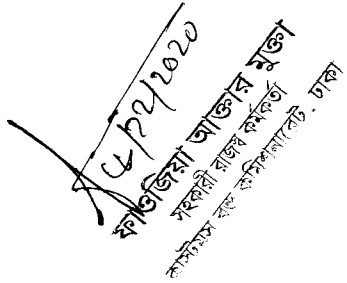 ১৫/১২/২০২০
ফাওজিয়া আক্তার মুক্তা
সহকারী রাজস্ব কর্মকর্তা
কাস্টমস বন্ড কমিশনারেট, ঢাকা